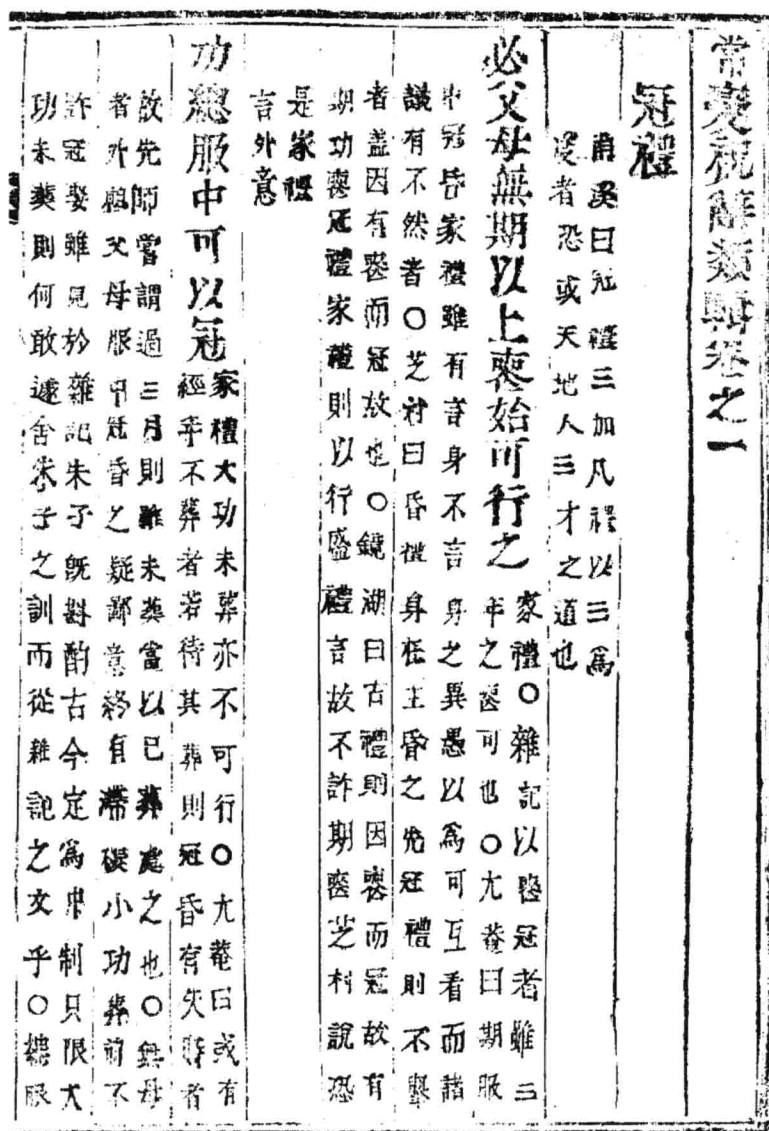 常變祝辭類輯卷之一
冠禮
南溪曰冠禮三加凡禮以三爲
度者恐或天地人三才之道也
必父母無期以上喪始可行之
家禮○雜記以喪冠者雖三
年之喪可也○尤菴曰期服
中冠昏家禮雖有言身不言身之異愚以爲可互看而諸
議有不然者○芝村曰昏禮身在主昏之先冠禮則不擧
者盖因有喪而冠故也○鏡湖曰古禮則因喪而冠故有
期功喪冠禮家禮則以行盛禮言故不許期喪芝村說恐
是家禮
言外意
功緦服中可以冠
家禮大功未葬亦不可行○尤菴曰或有
經年不葬者若待其葬則冠昏有失時者
故先師嘗謂過三月則雖未葬當以已葬處之也○無母
者外祖父母服中冠昏之疑鄙意終有滯礙小功葬前不
許冠娶雖見於雜記朱子旣斟酌古今定爲中制只限大
功未葬則何敢遽舍朱子之訓而從雜記之文乎○緦服